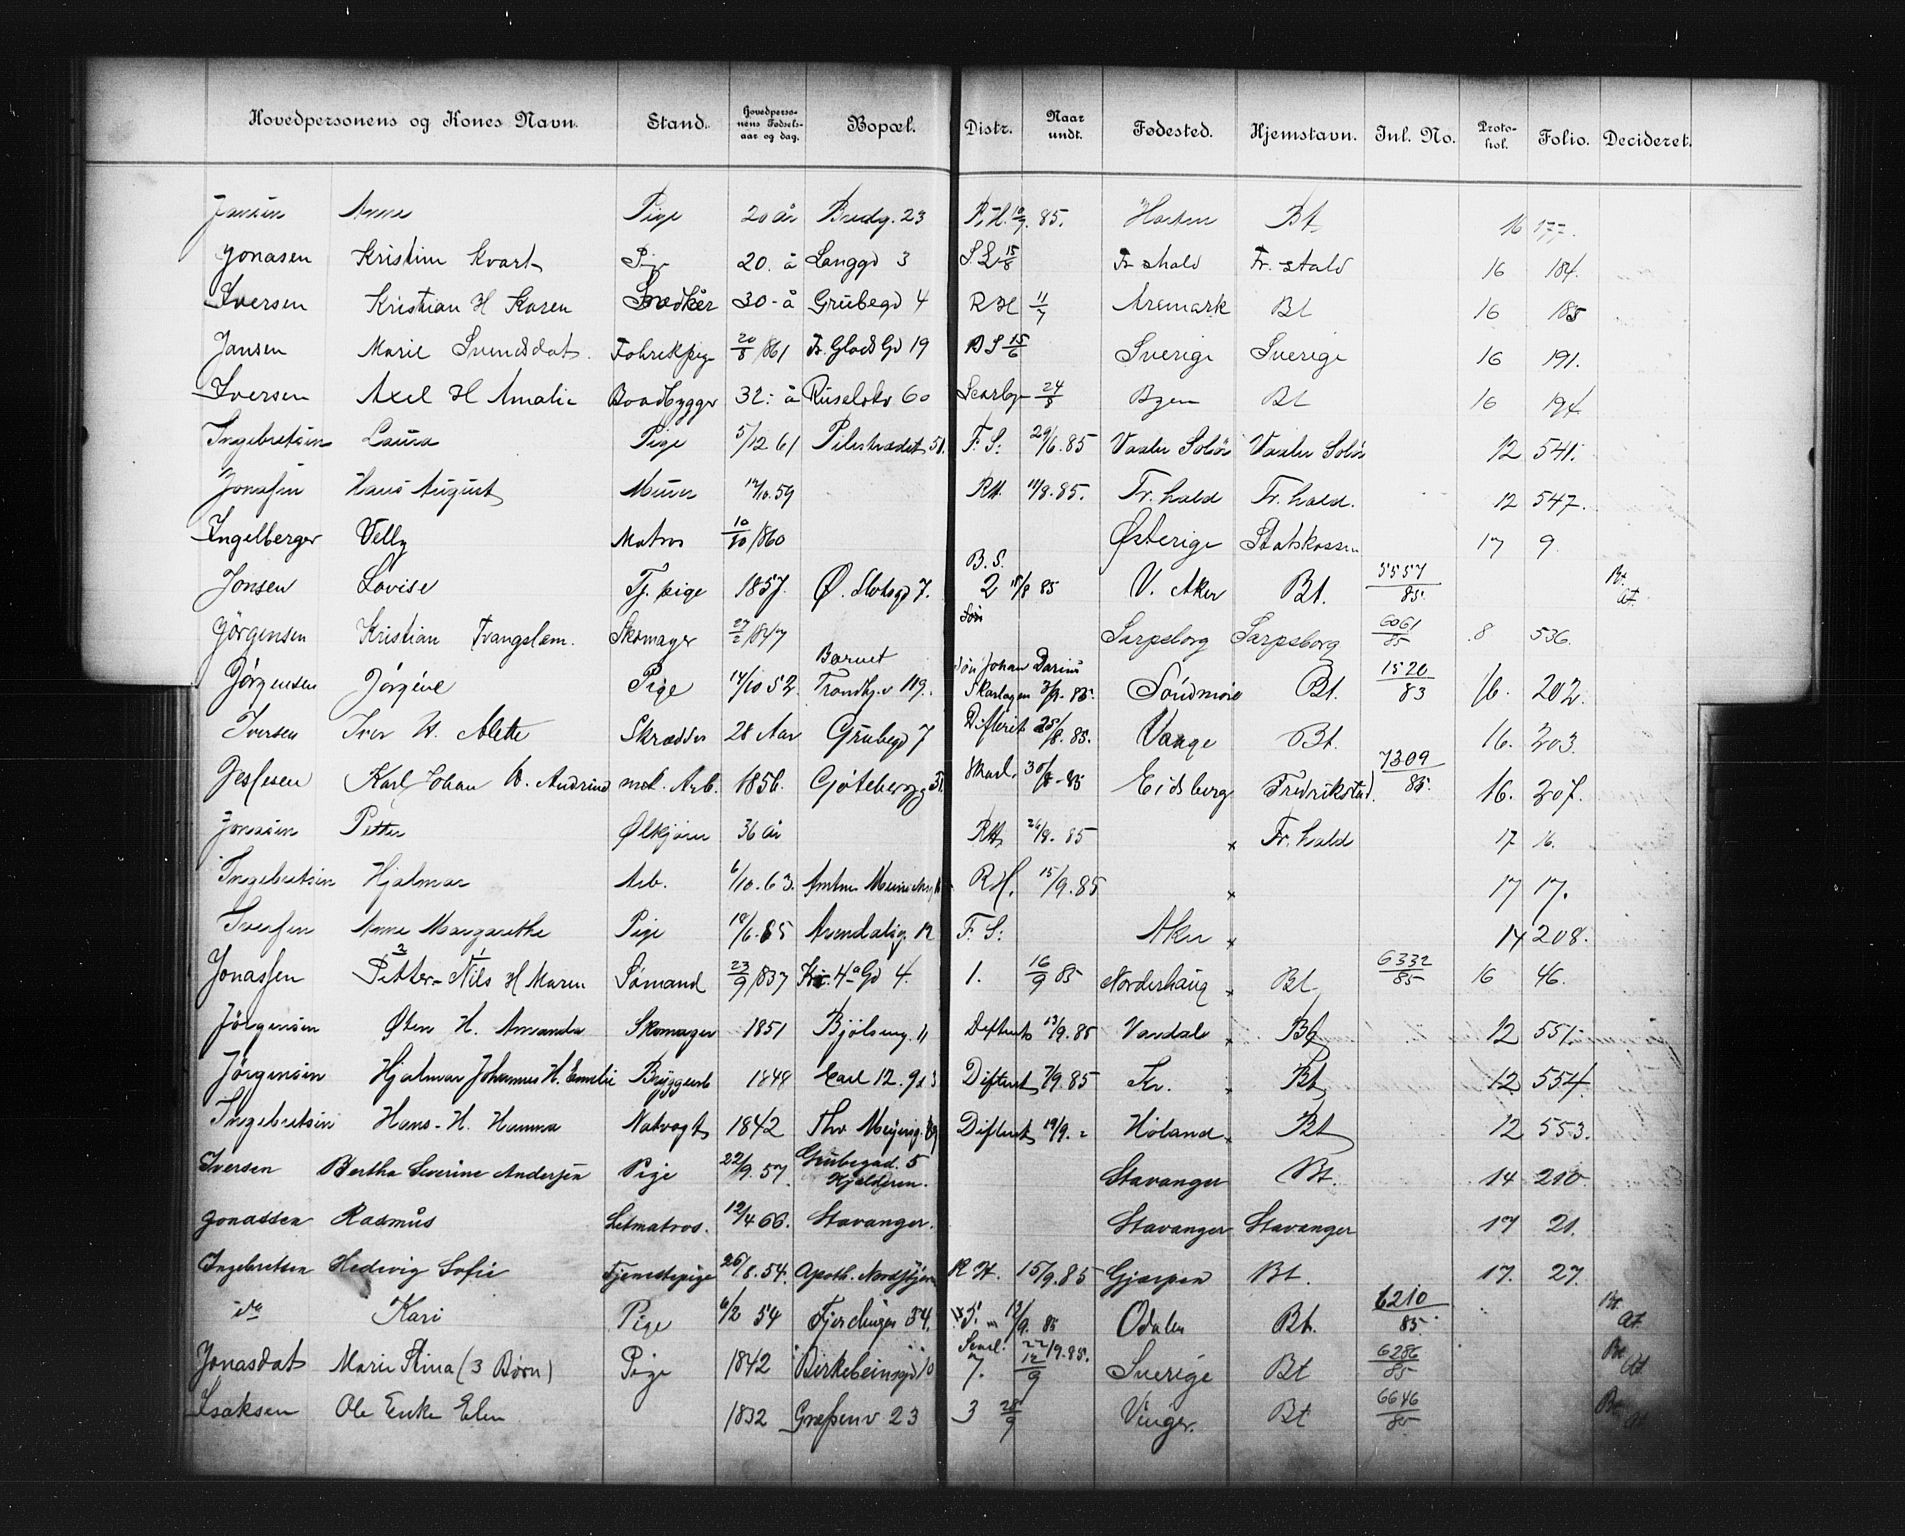 Hovedpersonens og Kones Navn. Stand. Hovedperso-nens Fødsels-aar og dag. Bopæl. Distr. Naar undt. Fødested. Hjemstavn. Inl. No. Proto-kol. Folio. Decideret.
Jansen Anne Pige 20 år Bredg. 23 R.H. 10/9. 85. Bt. 16 177.
Jonasen Kristine Kvart Pige 20. å Langgd 3 S 2 15/8 Fr. stald Fr. stald 16 184.
Iversen Kristian H Karen Snedker 30-å Grubegd 4 R H 11/7 Aremark Bt 16 185
Jansen Marie Svendsdat. Fabrikpige 20/8 1861 Fr. Glads Gd 19 B S 15/6 Sverige Sverige 16 191.
Iversen Axel H Amalie Baadbygger 32: å Ruseløkv 60 24/8 Bt 16 194
Ingebretsen Laura Pige 5/12 61 Pilestrædet 51. F. S: 29/6. 85 Vaaler Solør Vaaler Solør 12 541.
Jonasen Hans August Murer 14/10. 59 RH. 11/8. 85. Fr. hald Fr. hald. 12 547.
Ingelberger Velly Matros 10/10 1860 Østerige Statskassen 17 9.
Jonsen Lovise Tj. pige 1857. Ø. Slotsgd 7. B. S. 2 15/8 85 V. Aker Bt. 5557/85. Bt. At.
Jörgensen Kristian Skomager 27/2 1847 Søn Sarpsborg Sarpsborg 6061/85 8 536.
Jørgensen Jørgine Pige 14/10 52. Barnet Trondhj.v 119. Søn Johan Darius Skarlagen 3/9. 85. Söndmøre Bt. 1520/83 16. 202.
Iversen Iver H. Alette Skrædder 28 Aar Grubegd 7 Difterit 25/8. 85. Vange Bt. 16. 203.
Jespesen Karl Johan H. Andrine mek. Arb. 1856. Gøtebergg 31. Skarl. 30/8-85 Eidsberg Fredrikstad. 7309/85. 16. 207.
Jonsen Petter Ølkjører 36 år RH 26/8. 85 x Fr. hald 17 16.
Ingebretsen Hjalmar Arb. 6/10. 63. R.H. 15/9. 85 x 17 17.
Iversen Anne Margarethe Pige 18/6. 65 Arendalsg. 12 F. S: Aker x 14 208.
Jonassen Petter-Nils H Maren Sømand 23/9 1837 Kr. 4a Gd 4. 1. 16/9 85 Norderhaug Bt 6332/85 16 46.
Jörgensen Øten H. Amanda Skomager 1851 Bjølseng. 11 Difterit 13/9. 85 Vardal Bt 12 551.
Jørgensen Hjalmar Johannes H. Emelie Bryggearb 1849 Carl 12. gd 3 Difterit 7/9. 85 Kr. Bt 12 554.
Ingebretsen Hans-H. Hanna Natvagt 1842 Thv Meyersg. 89 Difterit 19/9. - Høland Bt 12 553.
Iversen Bertha Severine Andersen Pige 22/9. 57. Grubegad. 5 Kjelderen. Stavanger Bt. 14 210.
Jonassen Rasmus Letmatros. 12/4 66. Stavanger. Stavanger Stavanger 17 21.
Ingebretsen Hedevig Sofie Tjenestepige 26/8. 54. Apoth. R H. 15/9. 85 Gjerpen Bt. 17. 27.
do Kari Pige 6/2 54 Fjerdingen 34. 13/9. 85 Odalen Bt. 6210/85. Bt. At.
Jonasdat Marie Stina (3 Børn) Pige 1842 Birkebeinergd 10 Scarl. 7. 22/9. 85. 12/9 Sverige Bt 6286/85 Bt At
Isaksen Ole Enke Elen 1832 Græsenv 23 3 28/9 Vinger. Bt 6646/85 Bt At